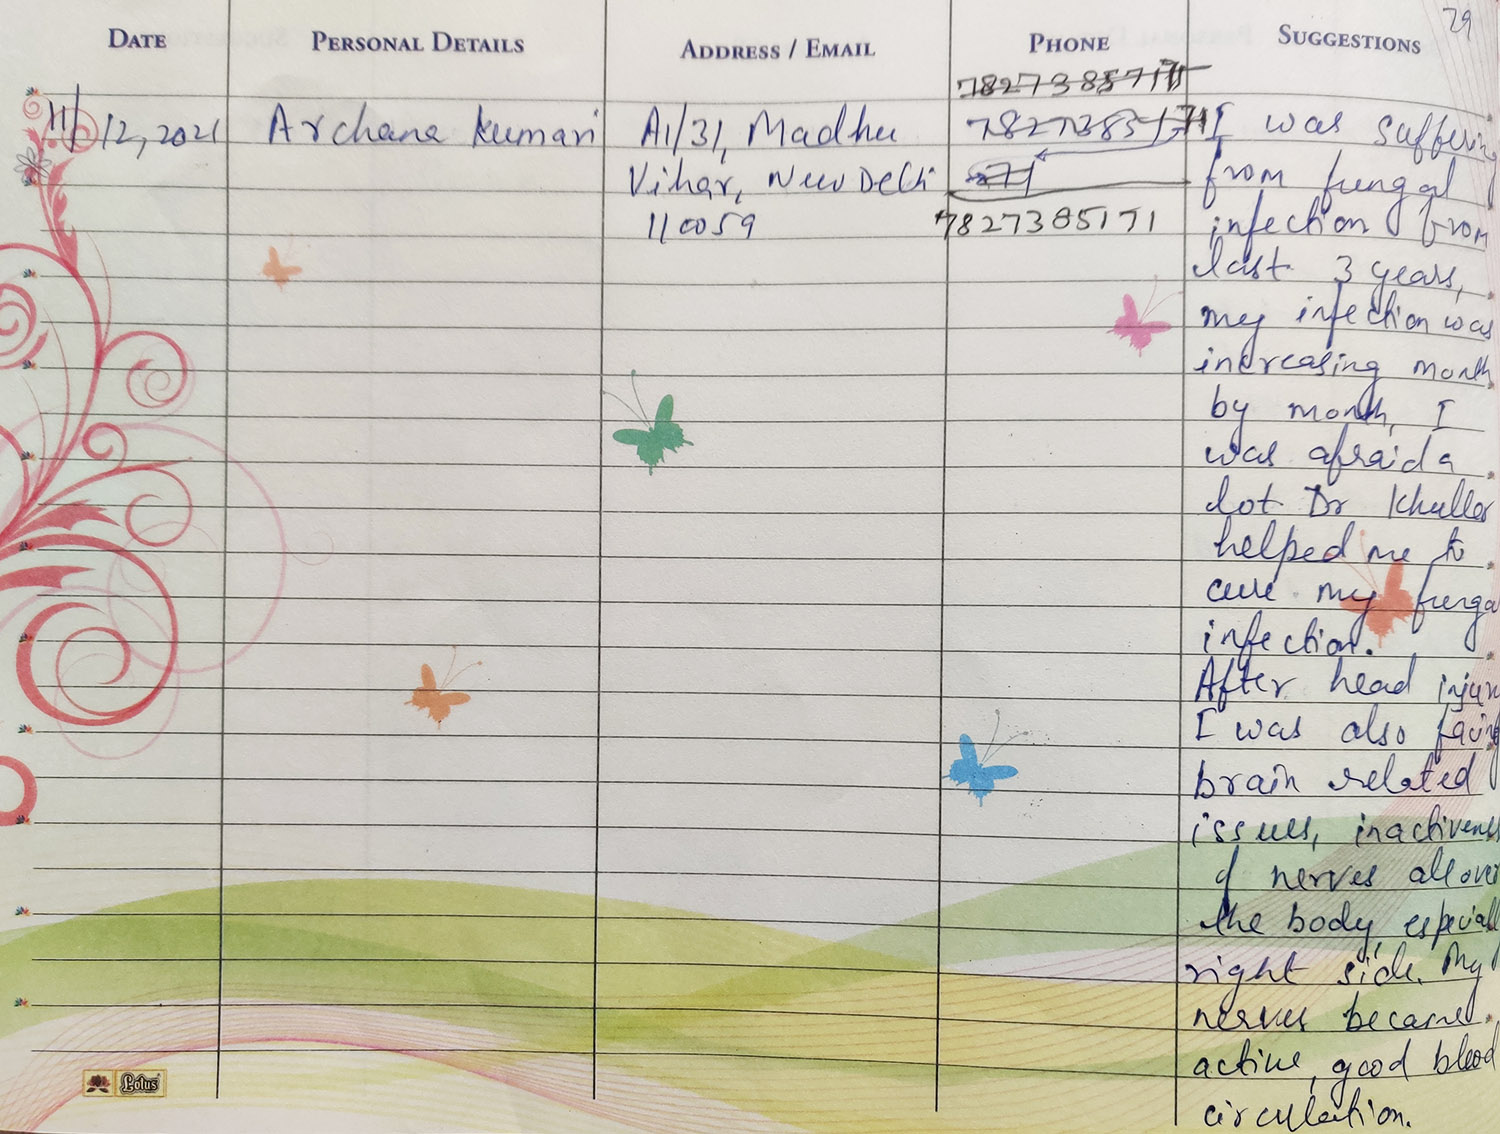 79
DATE PERSONAL DETAILS ADDRESS / EMAIL PHONE SUGGESTIONS
11/12,2021 Archana Kumari A1/31, Madhu
Vihar, New Delhi
110059
7827385171
I was suffering
from fungal
infection from
last 3 years,
my infection was
increasing month
by month, I
was afraid a
lot Dr Khuller
helped me to
cure my funga
infection.
After head injury
I was also facing
brain related
issues, inactiveness
of nerves all over
the body, especiall
right side. My
nerves became
active, good blood
circulation.
Lotus